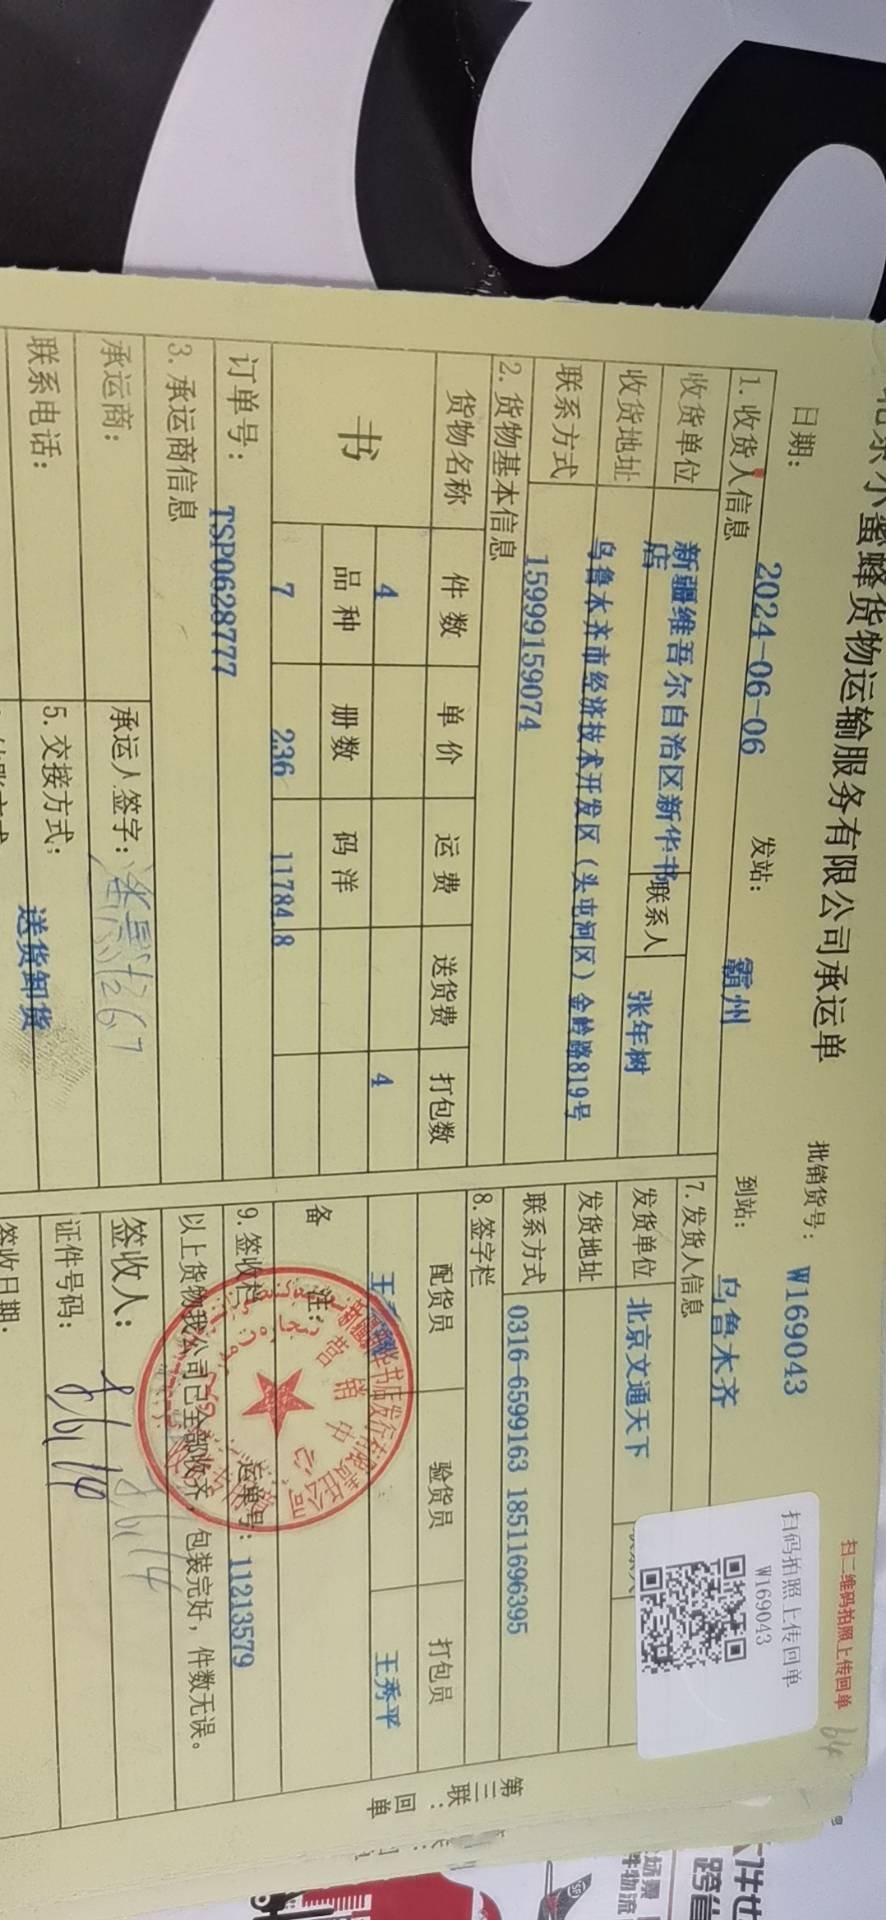 小蜜蜂货物运输服务有限公司承运单
扫二维码拍照上传回单
64
批销货号: W169043
扫码拍照上传回单
W169043
日期: 2024-06-06 发站: 霸州 到站: 乌鲁木齐
1.收货人信息
收货单位 新疆维吾尔自治区新华书店 联系人 张年树
收货地址 乌鲁木齐市经济技术开发区（头屯河区）金岭路819号
联系方式 15999159074
7.发货人信息
发货单位 北京文通天下
发货地址
联系方式 0316-6599163 18511696395
2.货物基本信息
货物名称 件数 单价 运费 送货费 打包数
书 4 4
品种 册数 码洋
7 236 11784.8
订单号: TSP0628777
8.签字栏
配货员 验货员 打包员
王 王秀平
备注:
运单号: 11213579
3.承运商信息
承运商:
承运人签字:
联系电话:
5.交接方式: 送货卸货
9.签收栏
以上货物我公司已全部收齐，包装完好，件数无误。
签收人:
证件号码:
签收日期:
第三联：回单
发行有限责任公司
营销中心